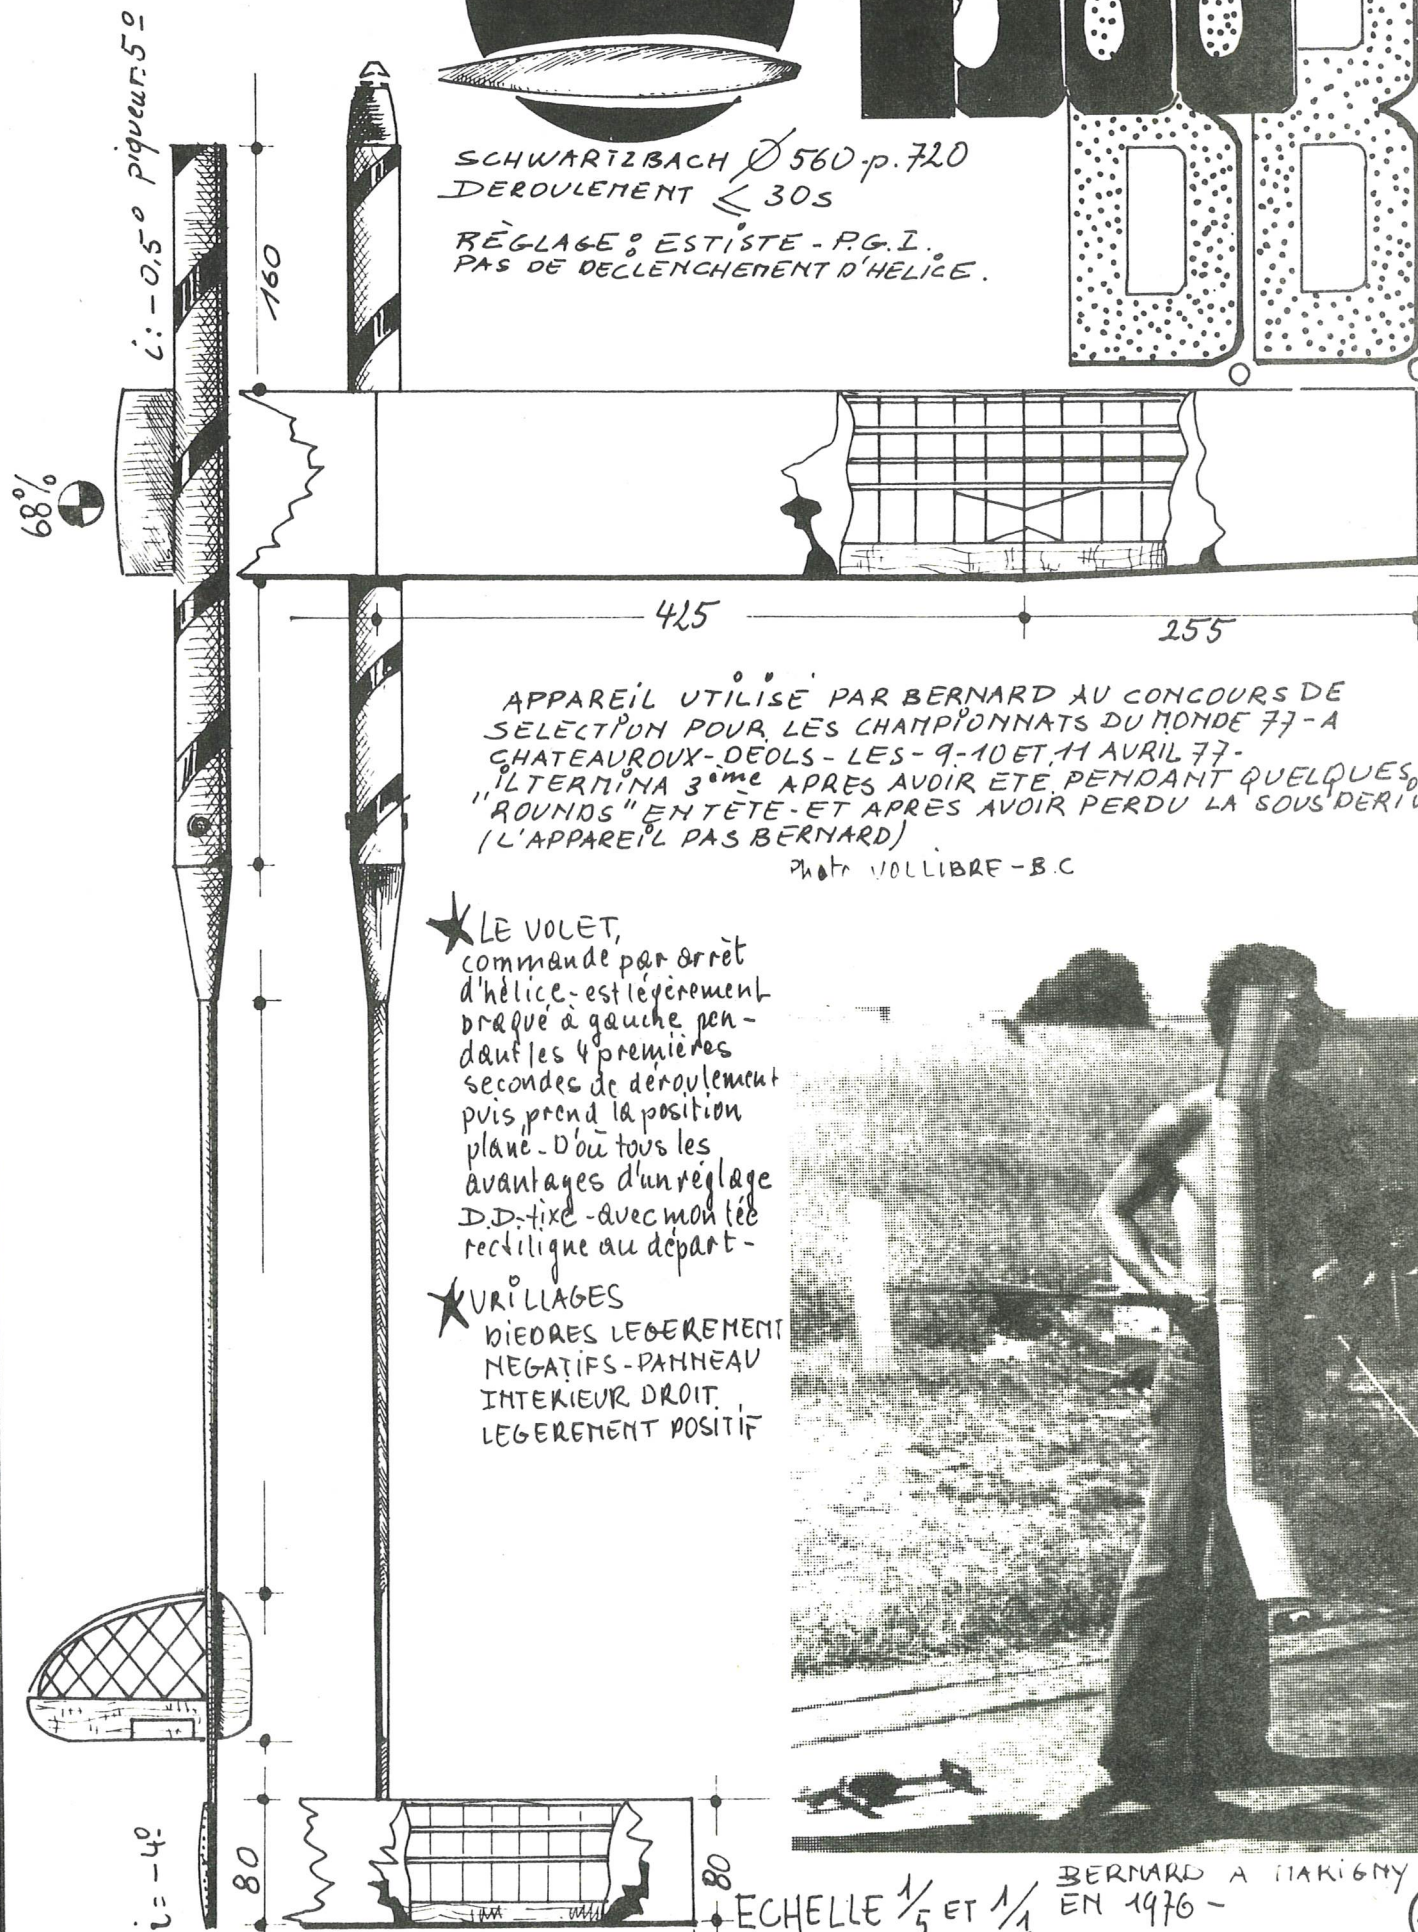 i: -0,5° piqueur: 5°
SCHWARTZBACH Ø 560 - p. 720
DEROULEMENT ≤ 30s
RÈGLAGE: ESTISTE - P.G.I.
PAS DE DECLENCHEMENT D'HELICE.
160
68%
425
255
APPAREiL UTiLiSÉ PAR BERNARD AU CONCOURS DE
SELECTiON POUR LES CHAMPiONNATS DU MONDE 77 - A
CHATEAUROUX-DEOLS - LES - 9-10 ET 11 AVRiL 77 -
iL TERMiNA 3ème APRES AVOIR ETE PENDANT QUELQUES
"ROUNDS" EN TÊTE - ET APRES AVOIR PERDU LA SOUS DERI
(L'APPAREiL PAS BERNARD)
Photo VOL LIBRE - B.C
LE VOLET,
commandé par arrêt
d'hélice - est légèrement
braqué à gauche pen-
dant les 4 premières
secondes de déroulement
puis prend la position
plané - D'où tous les
avantages d'un réglage
D.D. fixe - avec montée
rectiligne au départ -
VRiLLAGES
DiEDRES LEGEREMENT
NEGATiFS - PANNEAU
INTERiEUR DROIT
LEGEREMENT POSITIF
i = -4°
80
80
ECHELLE 1/5 ET 1/1
BERNARD A MARIGNY
EN 1976 -